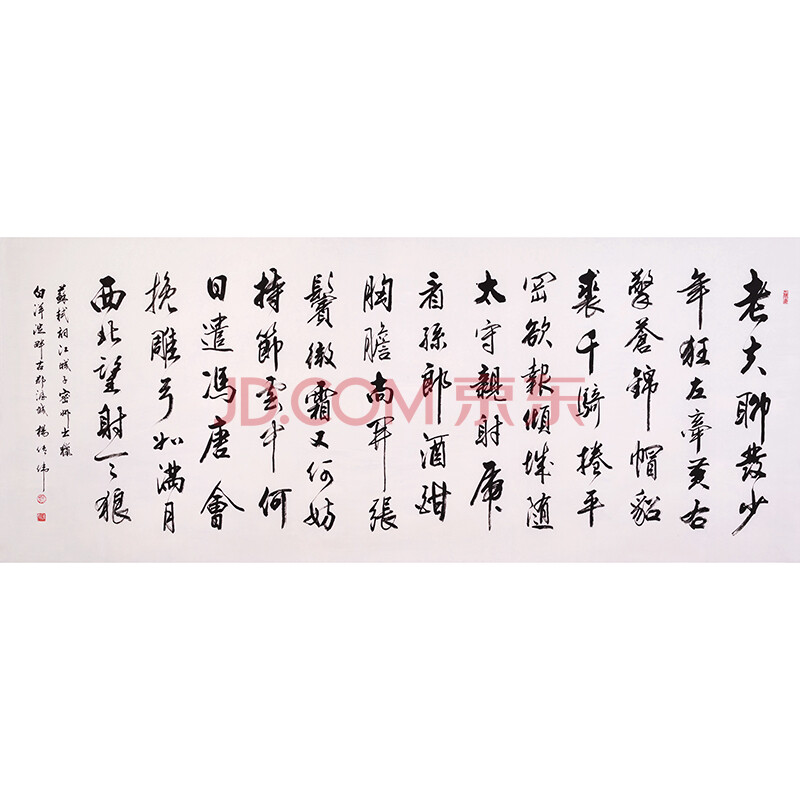 老夫聊發少
年狂左牽黃右
擎蒼錦帽貂
裘千騎捲平
岡欲報傾城隨
太守親射虎
看孫郎酒酣
胸膽尚開張
鬢微霜又何妨
持節雲中何
日遣馮唐會
挽雕弓如滿月
西北望射天狼
蘇軾詞江城子密州出獵
白洋淀畔古楊
JD.COM 京东